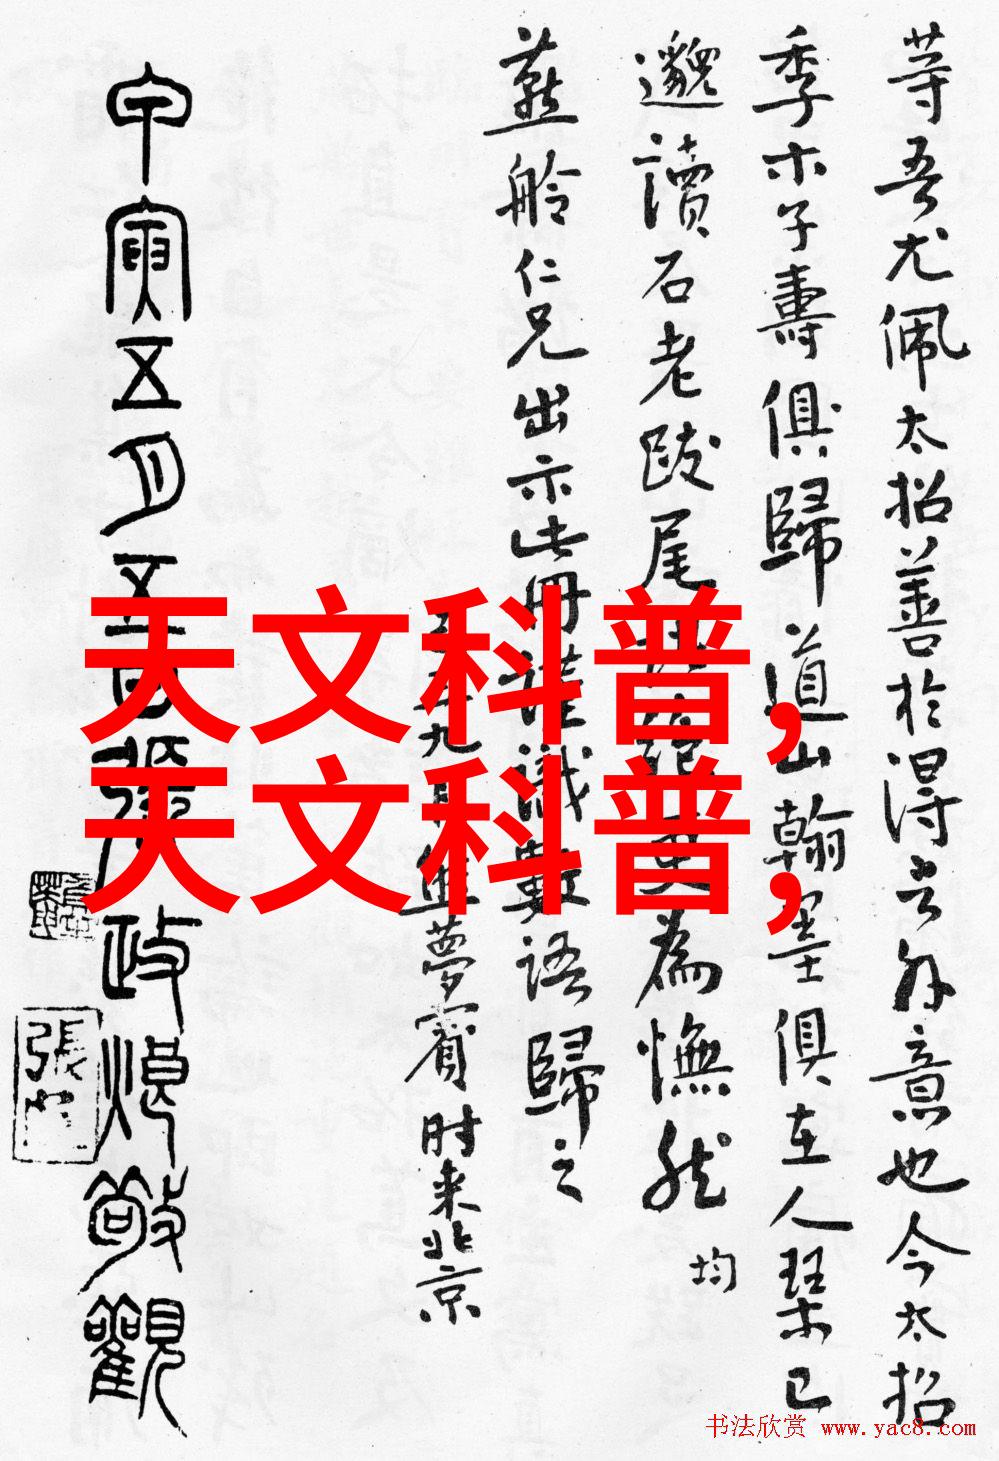 等吾尤佩太招善於得言外意也今太招
季木子壽俱歸道山翰墨俱在人琴已
邈讀石老跋尾 為憮然 均
燕舲仁兄出示此冊謹識數語歸之
九 夢賓时来北京
甲寅五月五日張政烺敬觀
張
天文科普,
天文科普,
书法欣赏 www.yac8.com